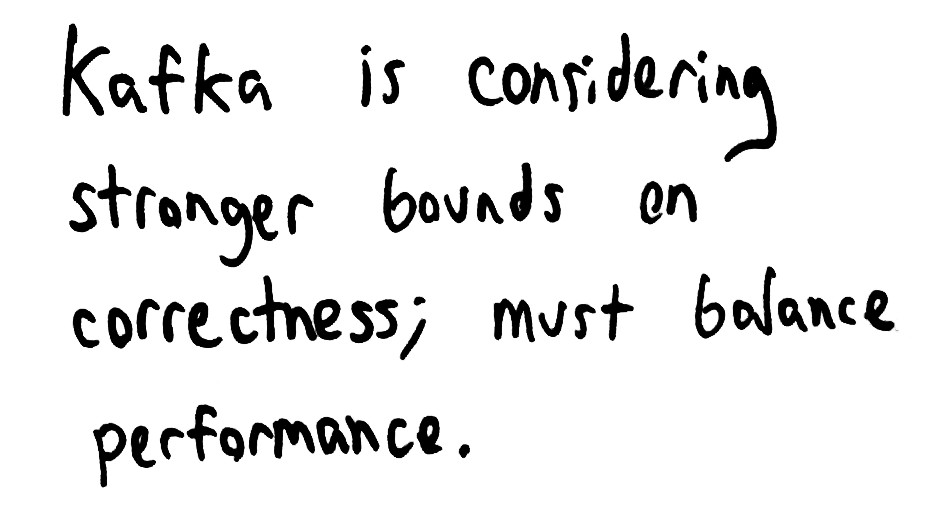 Kafka is considering
stronger bounds on
correctness; must balance
performance.